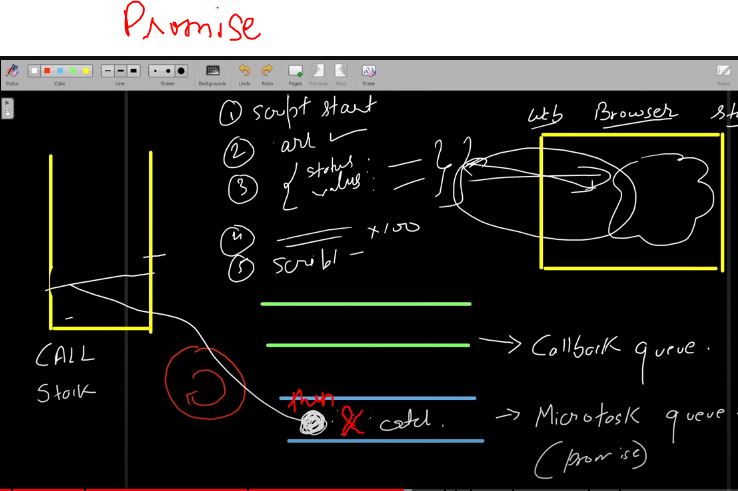 Promise
Stylus Color Line Eraser Backgrounds Undo Redo Pages Previous Next Erase Board
① script start
② arr
③ { status :
value :
④ x100
⑤
web Browser
CALL
Stack
Callback queue.
then & catch.
Microtask queue
(promise)